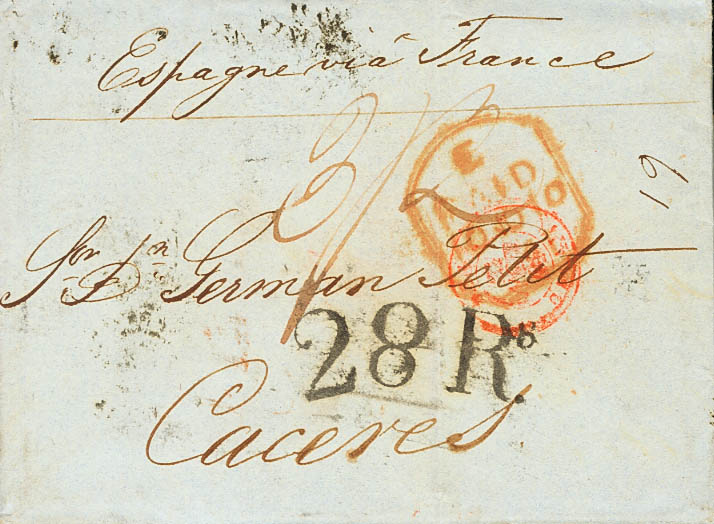 Espagne viâ France
E
PAID
19
Sor Dn German Petit
28 Rs.
Caceres